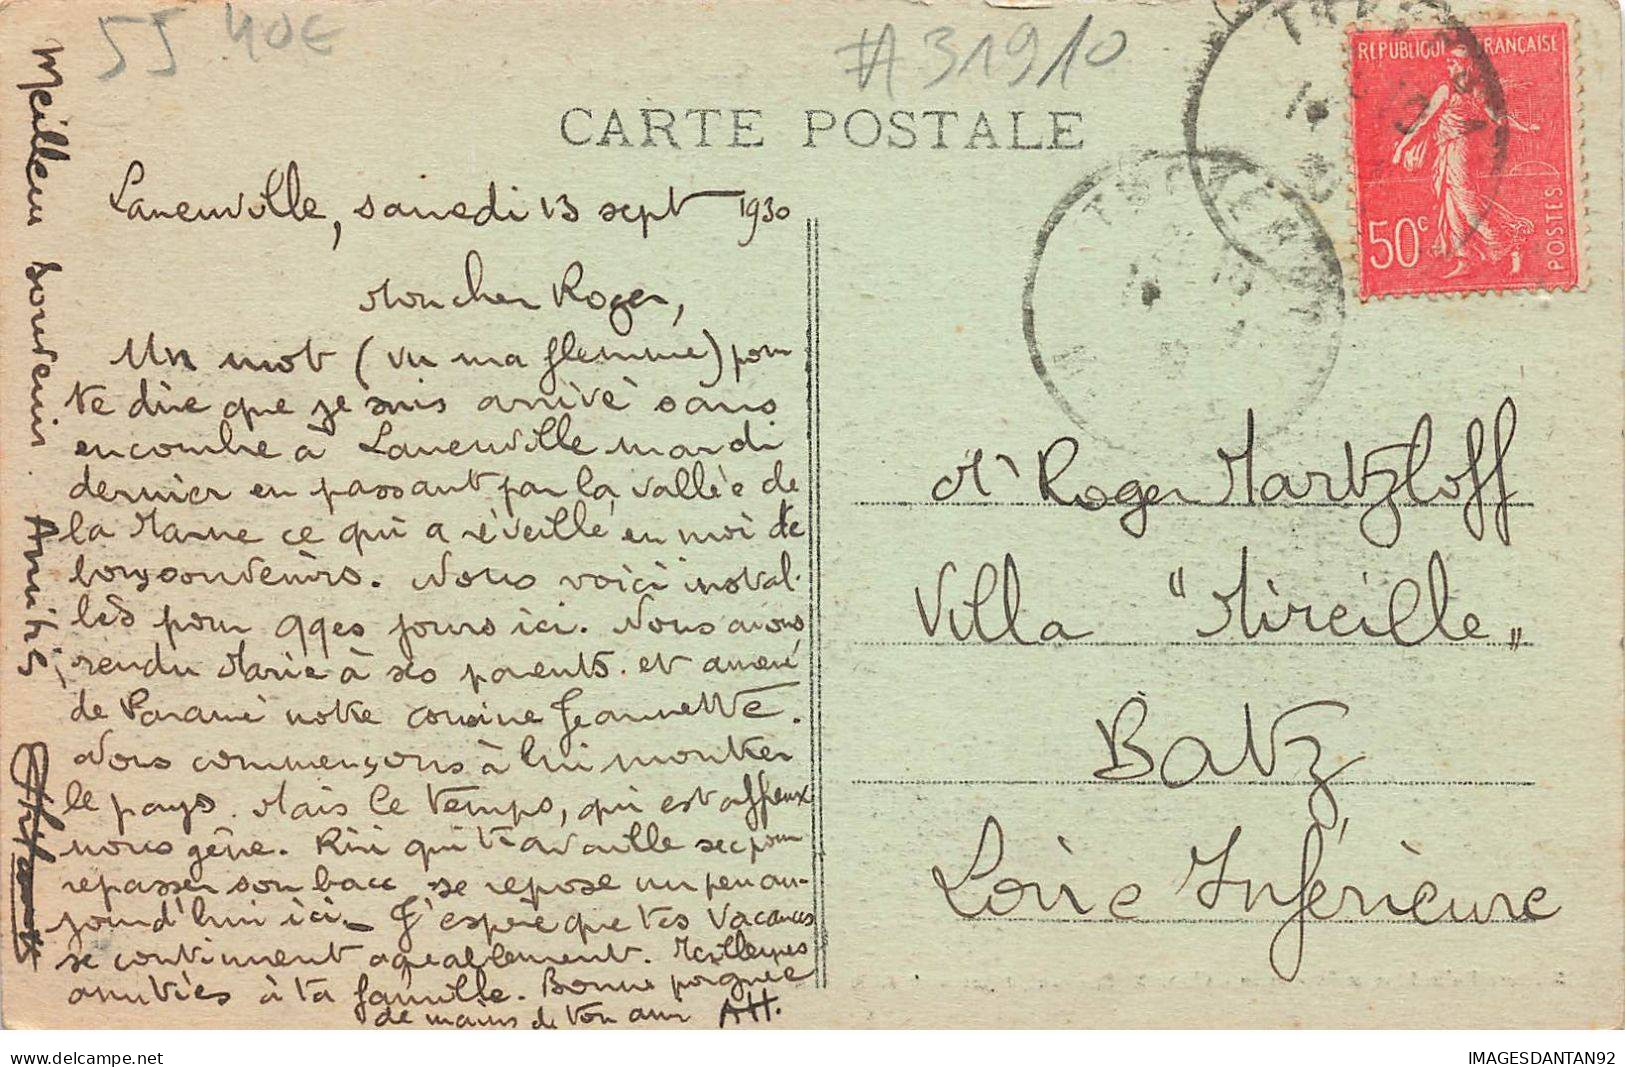 55 40€
#31910
CARTE POSTALE
REPUBLIQUE FRANÇAISE
50c
POSTES
Laneuville, samedi 13 sept 1930
Mon cher Roger,
Un mot (vu ma flemme) pour
te dire que je suis arrivé sans
encombre à Laneuville mardi
dernier en passant par la vallée de
la Marne ce qui a réveillé en moi de
bons souvenirs. Nous voici instal-
lés pour qques jours ici. Nous avons
rendu Marie à ses parents et amené
de Paramé notre cousine Jeannette.
Nous commençons à lui montrer
le pays. Mais le temps, qui est affreux
nous gêne. Riri qui travaille sec pour
repasser son bacc se repose un peu au-
jourd'hui ici. J'espère que tes vacances
se continuent agréablement. Meilleures
amitiés à ta famille. Bonne poignée
de mains de ton ami AH.
Meilleur souvenir. Amitiés
Mr Roger Martzloff
Villa "Mireille"
Batz
Loire Inférieure
delcampe.net
IMAGESDANTAN92